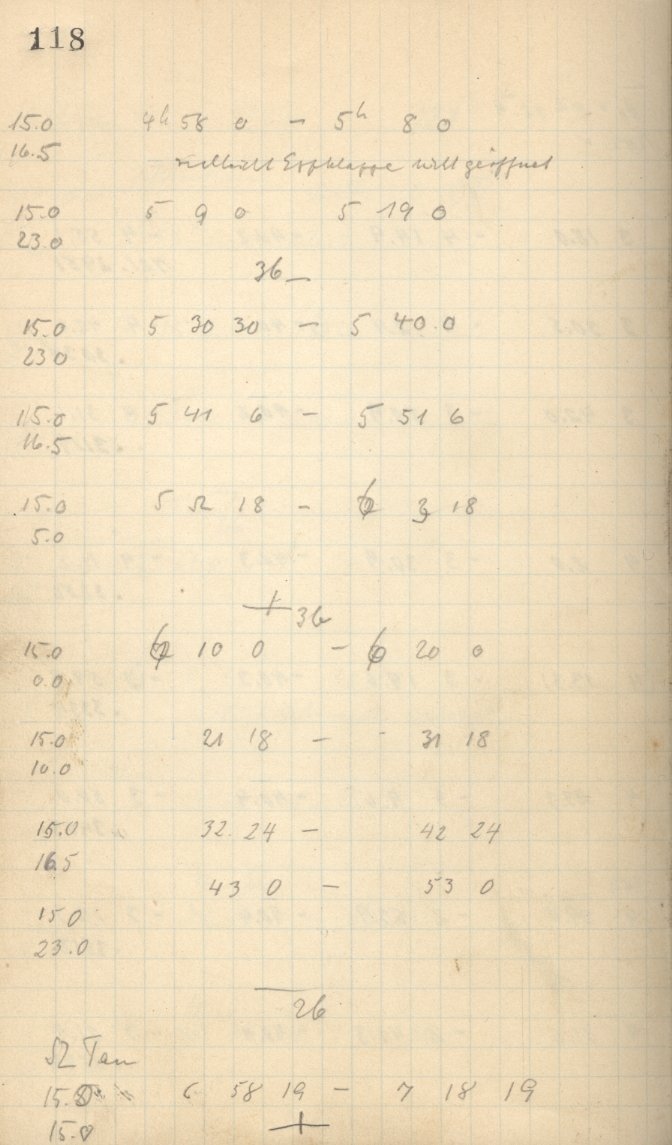 118
15.0 4h 58 0 – 5h 8 0
16.5 – geöffnet
15.0 5 9 0 5 19 0
23.0
36 –
15.0 5 30 30 – 5 40.0
23 0
15.0 5 41 6 – 5 51 6
16.5
15.0 5 52 18 – 6 3 18
5.0
+ 36
15.0 6 10 0 – 6 20 0
0.0
15.0 21 18 – 31 18
10.0
15.0 32. 24 – 42 24
16.5
43 0 – 53 0
15.0
23.0
26
SZ Tau
15.0 6 58 19 – 7 18 19
15.0 +